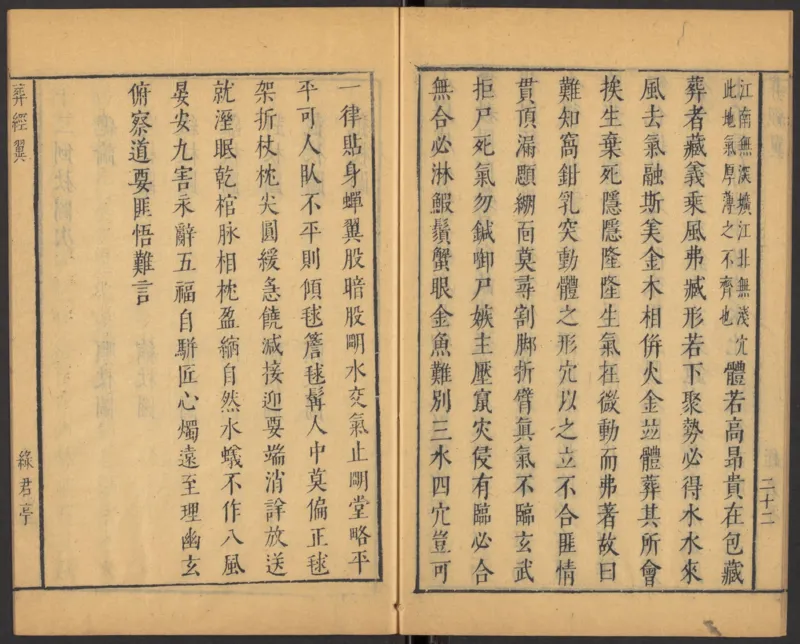 江南無深壙江北無淺穴
此地氣厚薄之不齊也
體若高昂貴在包藏
葬者藏義乘風弗臧形若下聚勢必得水水來
風去氣融斯美金木相併火金竝體葬其所會
挨生棄死隱隱隆隆生氣在微動而弗著故曰
難知窩鉗乳突動體之形穴以之立不合匪情
貫頂漏顋綳面莫尋割脚折臂眞氣不臨玄武
拒尸死氣勿鍼啣尸嫉主壓窠灾侵有臨必合
無合必淋鰕鬚蟹眼金魚難別三水四穴豈可
二十二
一律貼身蟬翼股暗股明水交氣止明堂略平
平可人臥不平則傾毬簷毬髯人中莫偏正毬
架折杖枕尖圓緩急饒減接迎要端消詳放送
就溼眠乾棺脉相枕盈縮自然水蟻不作八風
晏安九害永辭五福自駢匠心燭遠至理幽玄
俯察道要匪悟難言
葬經翼
綠君亭